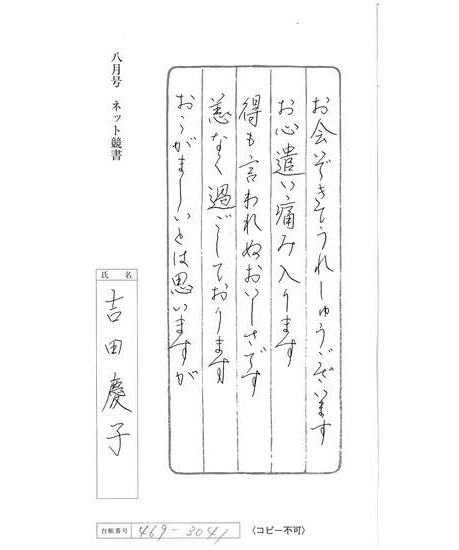 お会いできてうれしゅうございます
お心遣い痛み入ります
得も言われぬおいしさです
恙なく過ごしております
おこがましいとは思いますが
八月号 ネット競書
氏名
吉田慶子
台帳番号 469-3041
〈コピー不可〉